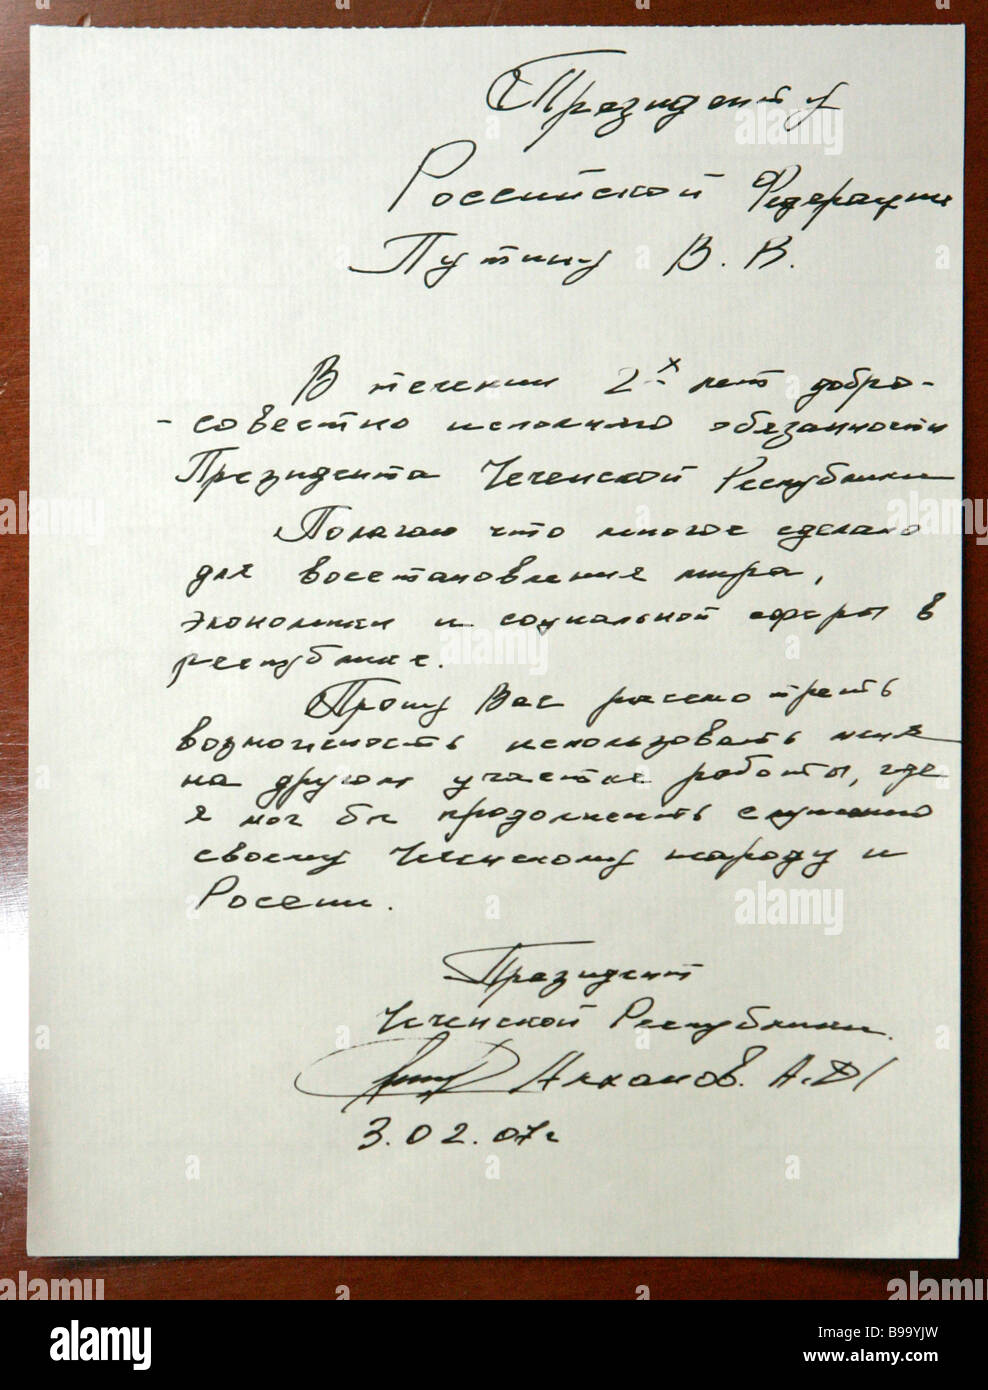 Президенту
Российской Федерации
Путину В. В.
В течении 2-х лет добро-
- совестно исполнял обязанности
Президента Чеченской Республики
Полагаю что многое сделано
для восстановления мира,
экономики и социальной сферы в
республике.
Прошу Вас рассмотреть
возможность использовать меня
на другом участке работы, где
я мог бы продолжить служению
своему Чеченскому народу и
России.
Президент
Чеченской Республики.
Алханов. А.Д
3.02.07г
alamy
Image ID: B99YJW
www.alamy.com